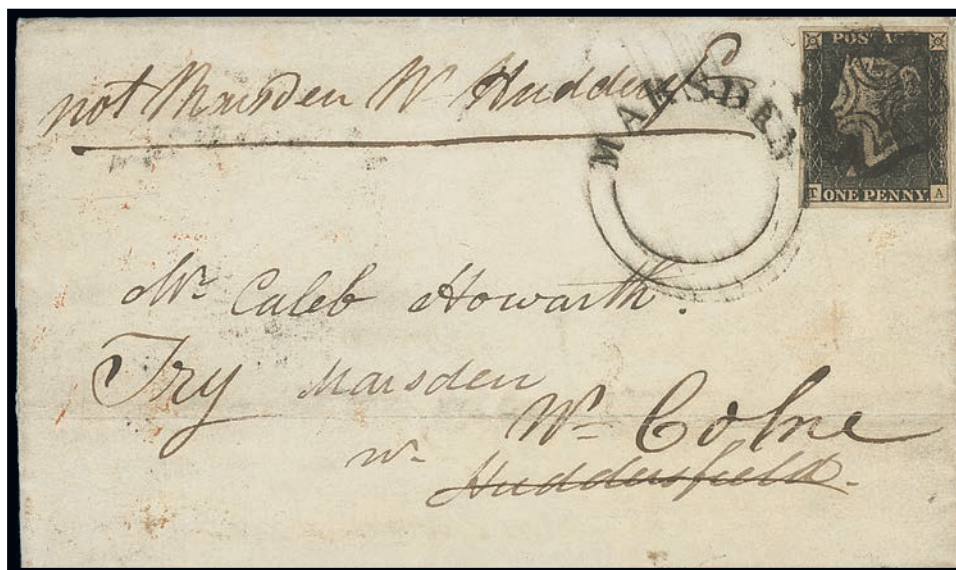 not Marsden Nr Hudders
MARSDEN
POSTAGE
T ONE PENNY. A
Mr Caleb Howarth.
Try Marsden
Nr Colne
nr Huddersfield.